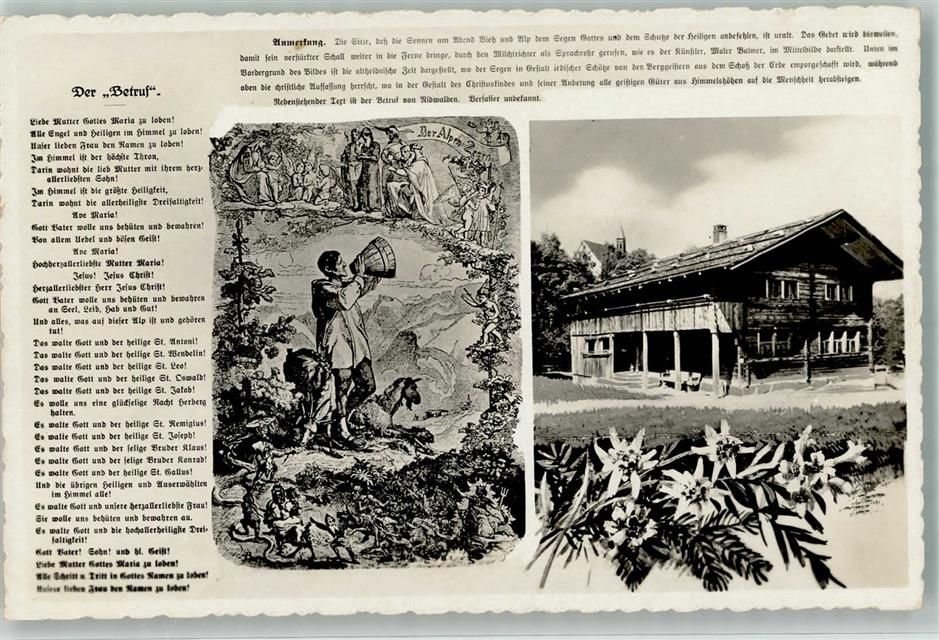 Anmerkung. Die Sitte, daß die Sennen am Abend Vieh und Alp dem Segen Gottes und dem Schutze der Heiligen anbefehlen, ist uralt. Das Gebet wird bisweilen,
damit sein verstärkter Schall weiter in die Ferne dringe, durch den Milchtrichter als Sprachrohr gerufen, wie es der Künstler, Maler Balmer, im Mittelbilde darstellt. Unten im
Vordergrund des Bildes ist die altheidnische Zeit dargestellt, wo der Segen in Gestalt irdischer Schätze von den Berggeistern aus dem Schoß der Erde emporgeschafft wird, während
oben die christliche Auffassung herrscht, wo in der Gestalt des Christuskindes und seiner Anbetung alle geistigen Güter aus Himmelshöhen auf die Menschheit herabsteigen.
Nebenstehender Text ist der Betruf von Nidwalden. Verfasser unbekannt.
Der „Betruf“.
Liebe Mutter Gottes Maria zu loben!
Alle Engel und Heiligen im Himmel zu loben!
Unser lieben Frau den Namen zu loben!
Im Himmel ist der höchste Thron,
Darin wohnt die lieb Mutter mit ihrem herz-
allerliebsten Sohn!
Im Himmel ist die größte Heiligkeit,
Darin wohnt die allerheiligste Dreifaltigkeit!
Ave Maria!
Gott Vater wolle uns behüten und bewahren!
Von allem Uebel und bösen Geist!
Ave Maria!
Hochherzallerliebste Mutter Maria!
Jesus! Jesus Christ!
Herzallerliebster Herr Jesus Christ!
Gott Vater wolle uns behüten und bewahren
an Seel, Leib, Hab und Gut!
Und alles, was auf dieser Alp ist und gehören
tut!
Das walte Gott und der heilige St. Antoni!
Das walte Gott und der heilige St. Wendelin!
Das walte Gott und der heilige St. Leo!
Das walte Gott und der heilige St. Oswald!
Das walte Gott und der heilige St. Jakob!
Es wolle uns eine glückselige Nacht Herberg
halten.
Es walte Gott und der heilige St. Remigius!
Es walte Gott und der heilige St. Joseph!
Es walte Gott und der selige Bruder Klaus!
Es walte Gott und der selige Bruder Konrad!
Es walte Gott und der heilige St. Gallus!
Und die übrigen Heiligen und Auserwählten
im Himmel alle!
Es walte Gott und unsere herzallerliebste Frau!
Sie wolle uns behüten und bewahren au.
Es walte Gott und die hochallerheiligste Drei-
faltigkeit!
Gott Vater! Sohn! und hl. Geist!
Liebe Mutter Gottes Maria zu loben!
Alle Schritt u. Tritt in Gottes Namen zu loben!
Unsere lieben Frau den Namen zu loben!
Der Alpen-